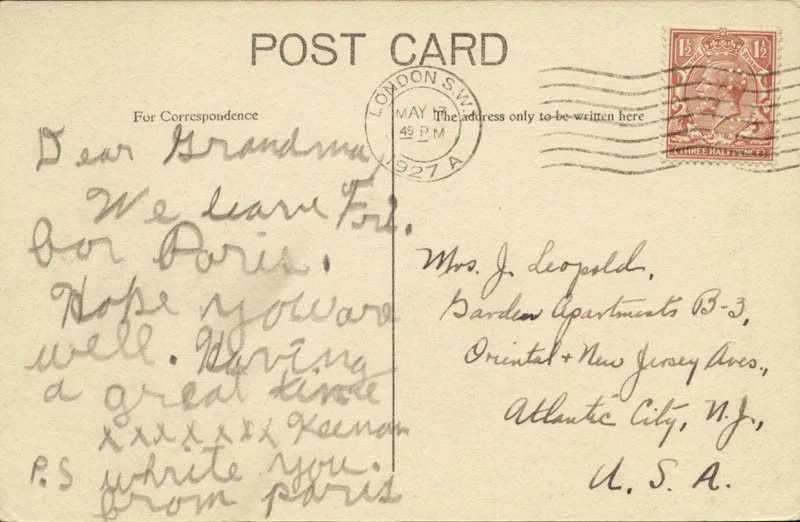 POST CARD
For Correspondence
The address only to be written here
LONDON S.W.
MAY 17
45 PM
1927 A
1½ 1½
THREE HALFPENCE
Dear Grandma,
We leave Fri.
for Paris.
Hope you are
well. Having
a great time
xxxxxxx Keenan
P.S white you.
from paris
Mrs. J. Leopold,
Garden Apartments B-3,
Oriental + New Jersey Aves.,
Atlantic City, N.J.,
U. S. A.